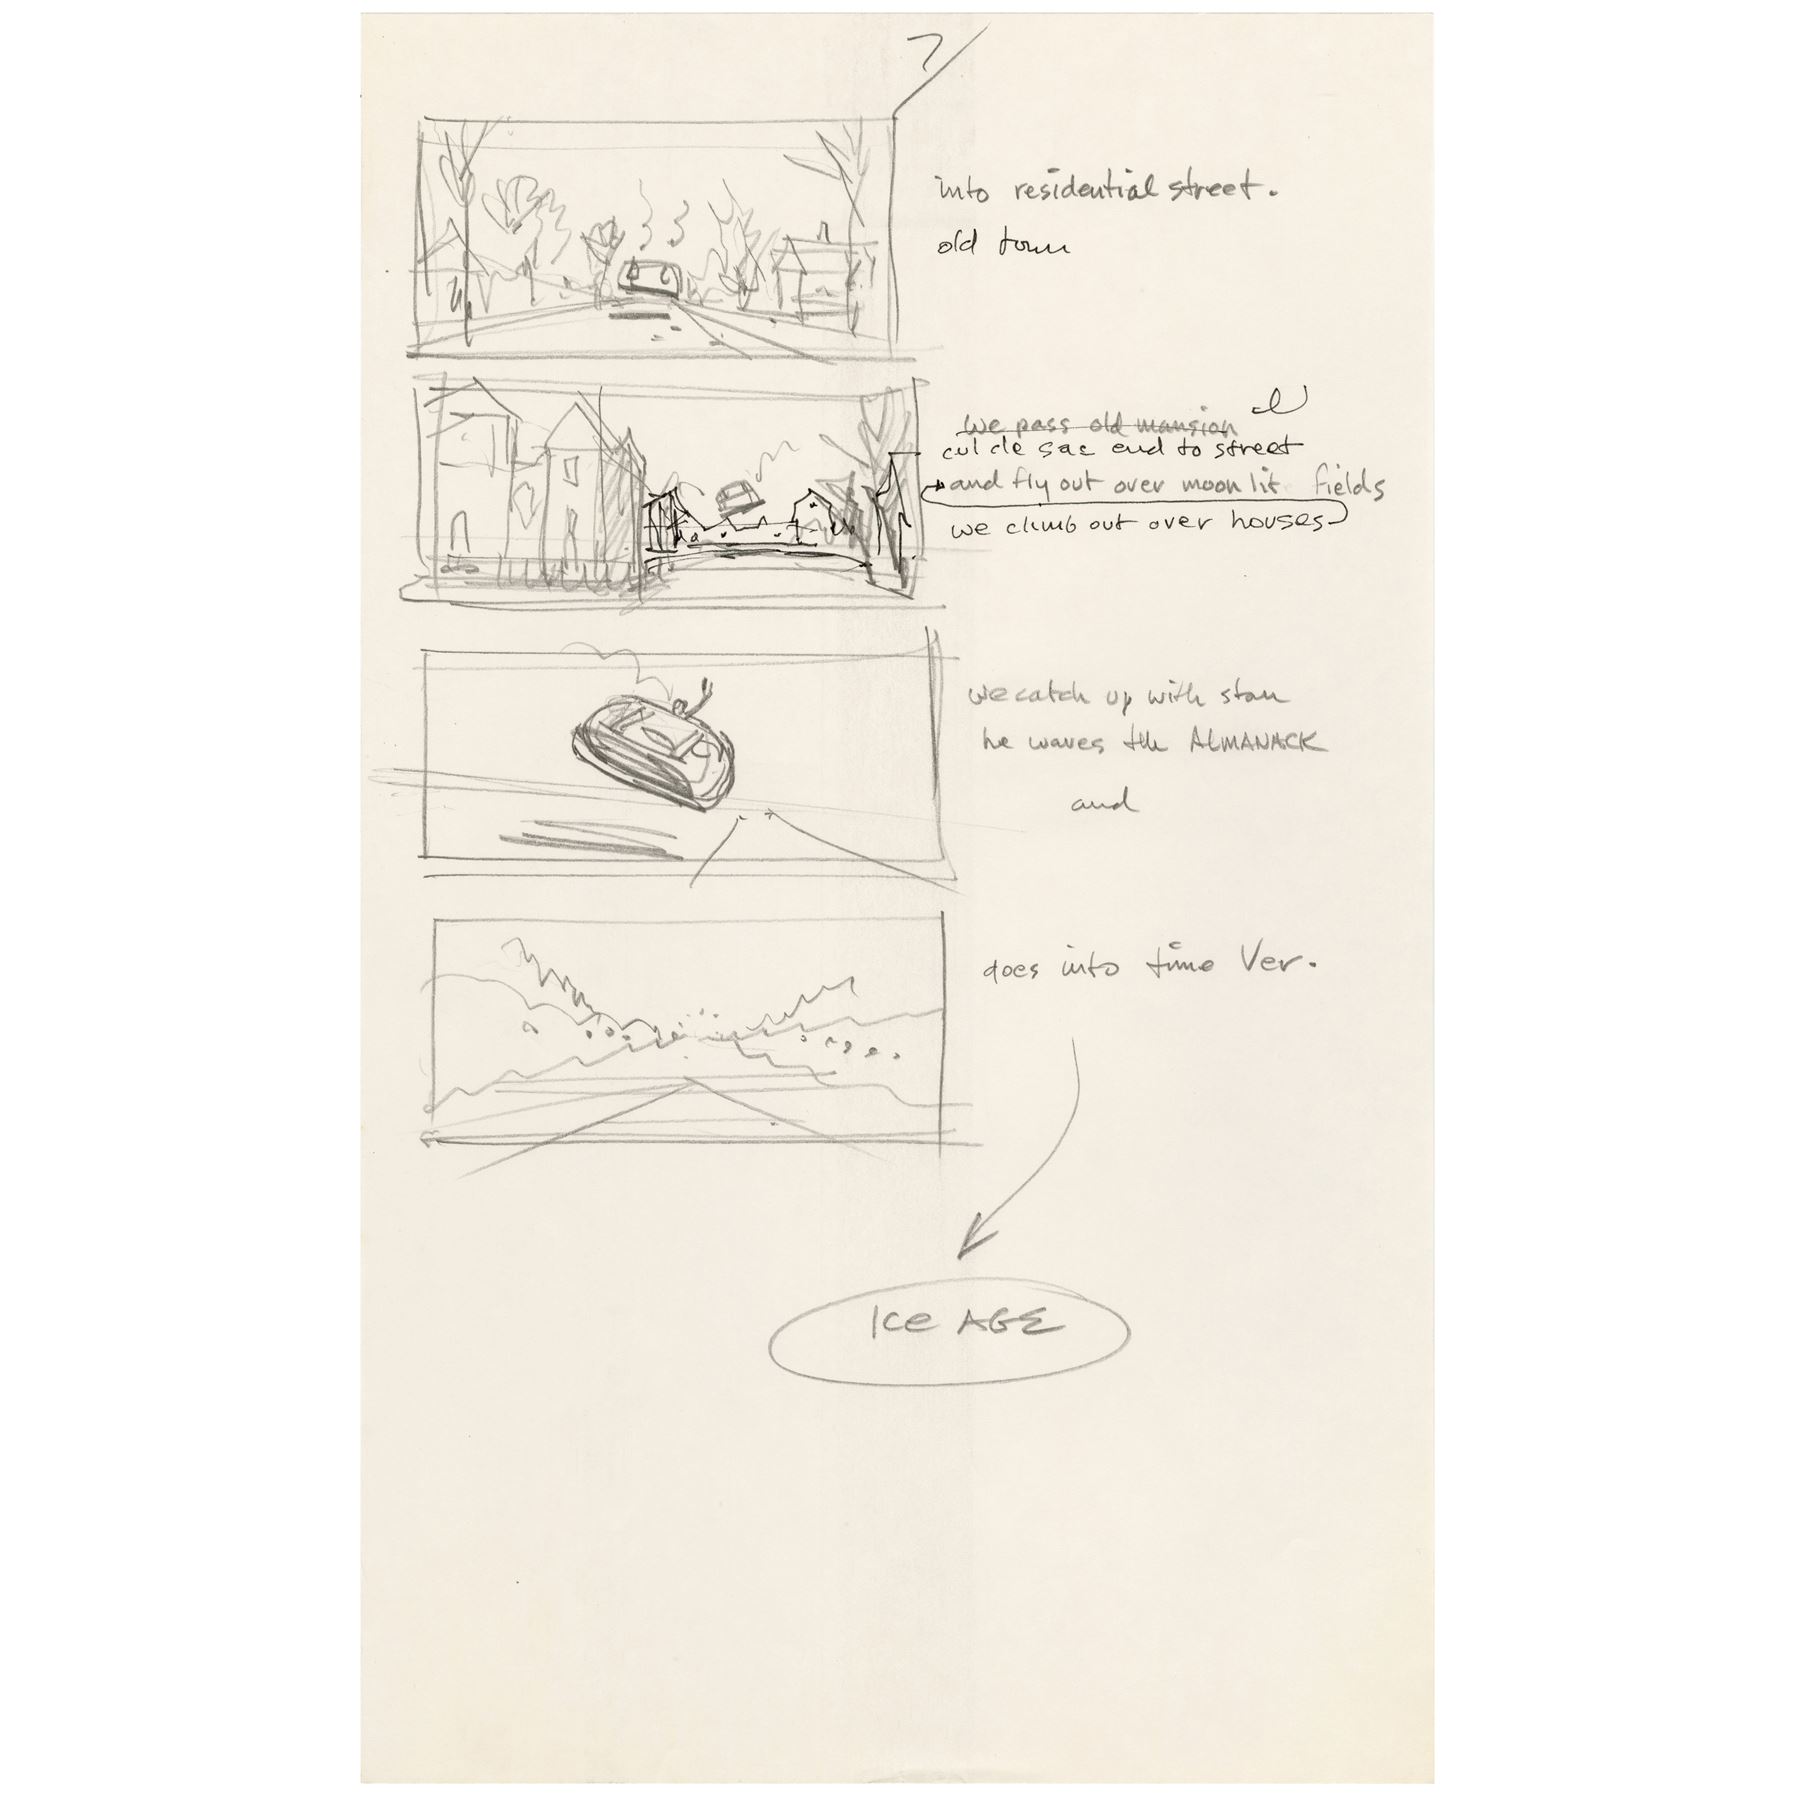 ?
into residential street.
old town
we pass old mansion
cul de sac end to street
and fly out over moon lit fields
we climb out over houses
we catch up with stan
he waves the ALMANACK
and
does into time Ver.
ICE AGE